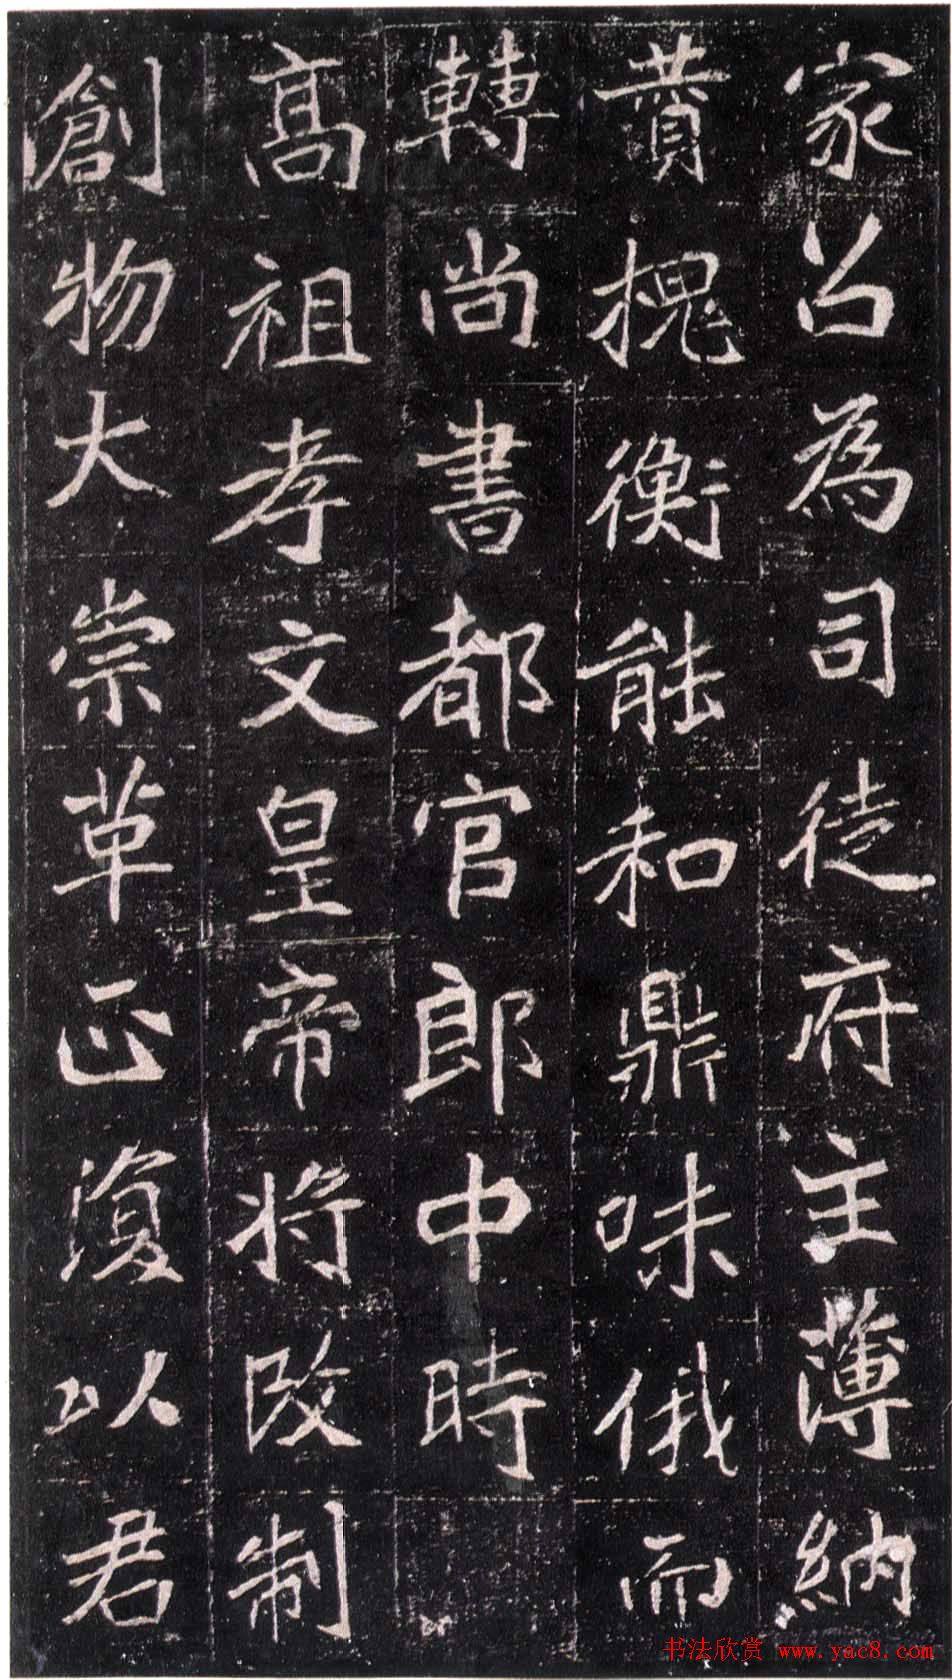 家召為司徒府主薄納
贊槐衡能和鼎味俄而
轉尚書都官郎中時
高祖孝文皇帝將改制
創物大崇革正復以君
书法欣赏 www.yac8.com